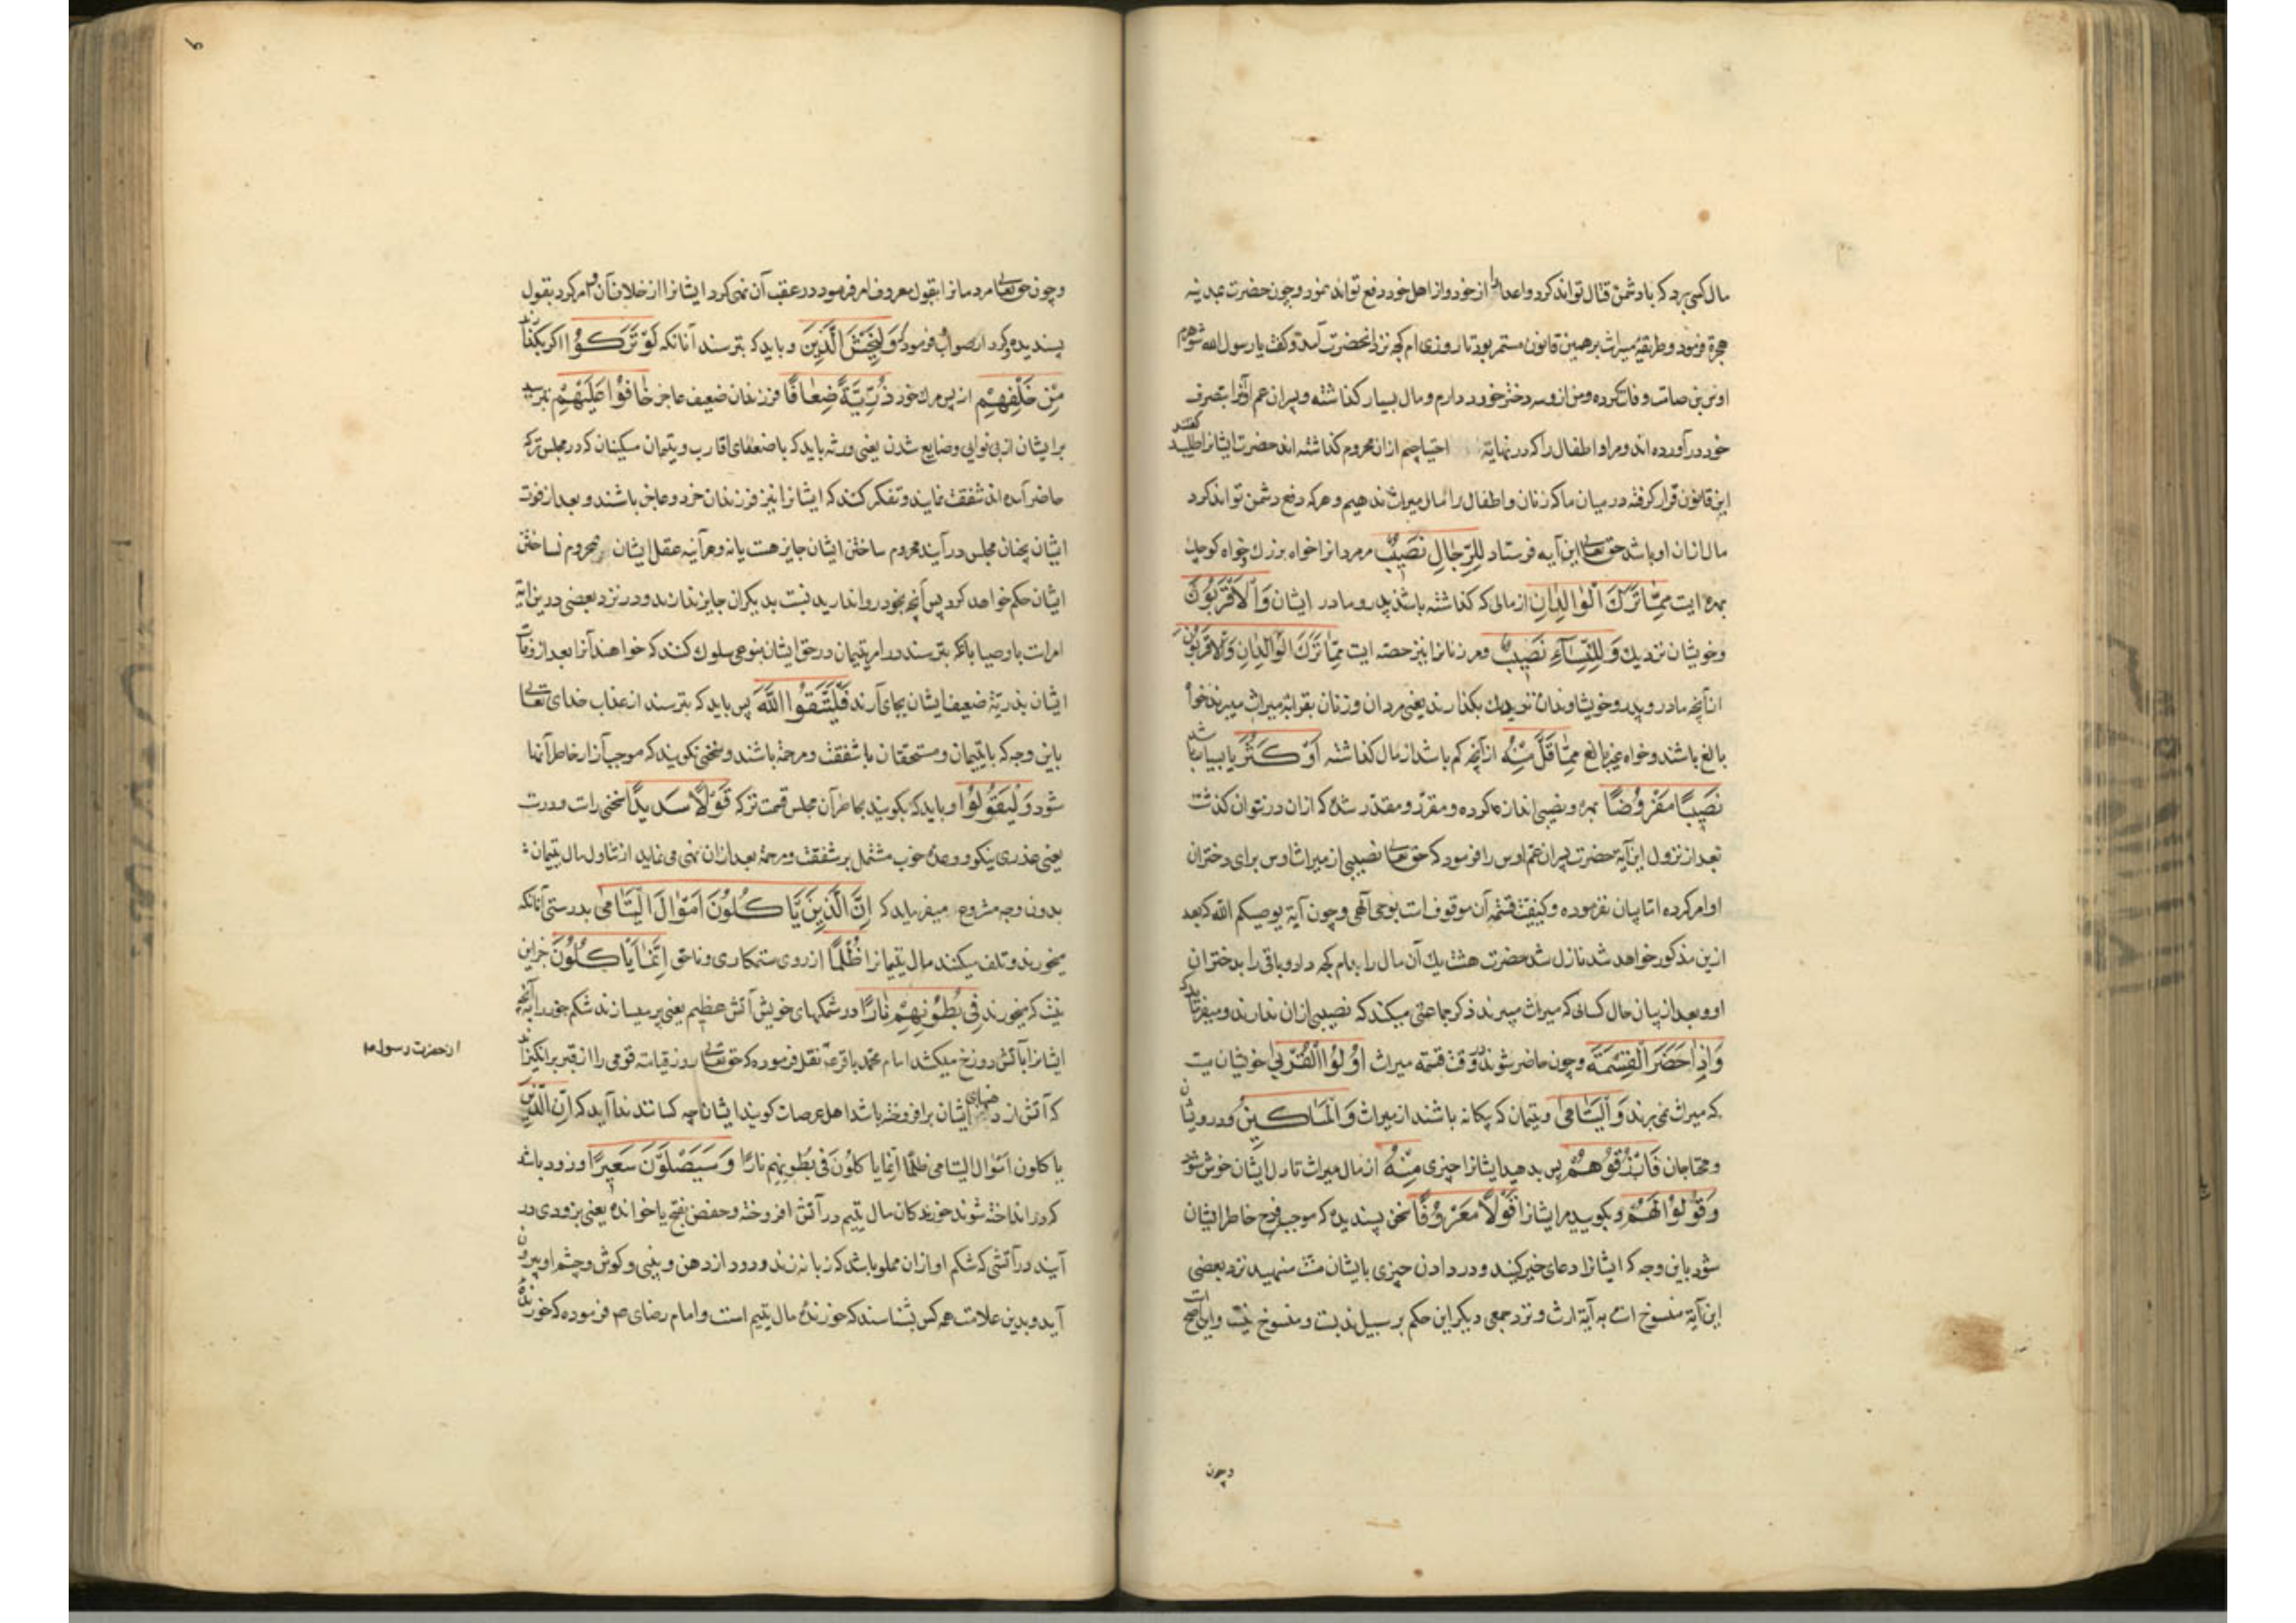 مال کسی برد که با دشمن قتال تواند کرد و اعدا را از خود و از اهل خود دفع تواند نمود و چون حضرت بمدینه
هجرة فرمود و طریقهٔ میراث بر همین قانون مستمر بود تا روزی ام کجه نزد آنحضرت آمد و گفت یا رسول الله شوهرم
اوس بن صامت وفات کرده و من از او سه دختر خورد دارم و مال بسیار گذاشته و پسران عم او آنرا بتصرف
خود در آورده اند و مرا و اطفال را که در نهایة احتیاجیم از ان محروم گذاشته اند حضرت ایشانرا طلبید گفتند
این قانون قرار گرفته در میان ما که زنان و اطفال را مال میراث ندهیم و هر که دفع دشمن تواند کرد
مال از ان او باشد حق تعالی این آیه فرستاد للرجال نصیب مر مردانرا خواه بزرك و خواه کوچك
بهره ایست مما ترك الوالدان از مالی که گذاشته باشند پدر و مادر ایشان والاقربون
و خویشان نزدیك وللنسآء نصیب و مر زنانرا نیز حصه ایست مما ترك الوالدان والاقربون
از آنچه مادر و پدر و خویشاوندان نزدیك بگذارند یعنی مردان و زنان بقرابة میراث میبرند خواه
بالغ باشند و خواه غیر بالغ مما قل منه از آنچه کم باشد از مال گذاشته او کثر یا بسیار باشد
نصیبا مفروضا بهره و نصیبی اندازه کرده و مقرر و مقدر شده که از ان در نتوان گذشت
بعد از نزول این آیة حضرت پسران عم اوس را فرمود که حق تعالی نصیبی از میراث اوس برای دختران
او امر کرده اما بیان نفرموده و کیفیت قسمة آن موقوف است بوحی آلهی و چون آیة یوصیکم الله که بعد
ازین مذکور خواهد شد نازل شد حضرت هشت یك آن مال را بام کجه داد و باقی را بدختران
او و بعد از بیان حال کسانی که میراث میبرند ذکر جماعتی میکند که نصیبی از ان ندارند و میفرماید که
واذا حضر القسمة و چون حاضر شوند در وقت قسمة میراث اولوا القربی خویشان میت
که میراث نمی برند والیتامی و یتیمان که بیکانه باشند از میراث والمساکین و درویشان
و محتاجان فارزقوهم پس بدهید ایشانرا چیزی منه از مال میراث تا دل ایشان خوش شود
وقولوا لهم و بگویید مر ایشانرا قولا معروفا سخن پسندیده که موجب فرح خاطر ایشان
شود باین وجه که ایشانرا دعای خیر کنید و در دادن چیزی بایشان منت منهید نزد بعضی
این آیة منسوخ است به آیة ارث و نزد جمعی دیگر این حکم بر سبیل ندبست و منسوخ نیست و این اصح است
و چون
و چون حق تعالی مردمانرا بقول معروف امر فرمود در عقب آن نهی کرد ایشانرا از خلاف آن و امر کرد بقول
پسندیده و کردار صواب فرمود که ولیخش الذین و باید که بترسند آنانکه لو ترکوا اکر بگذارند
من خلفهم از پس مرك خود ذریة ضعافا فرزندان ضعیف عاجز خافوا علیهم بترسند
بر ایشان از بی نوایی و ضایع شدن یعنی ورثه باید که با ضعفای اقارب و یتیمان مسکینان که در مجلس ترکه
حاضر آمده اند شفقت نمایند و تفکر کنند که ایشانرا نیز فرزندان خرد و عاجز باشند و بعد از فوت
ایشان بچنان مجلس در آیند محروم ساختن ایشان جایز هست یا نه و هر آینه عقل ایشان بمحروم نساختن
ایشان حکم خواهد کرد پس آنچه بخود روا ندارید نسبت بدیگران جایز ندانند و در نزد بعضی درین آیة
امر است باوصیا بانکه بترسند در امر یتیمان در حق ایشان بنوعی سلوك کنند که خواهند آنرا بعد از وفات
ایشان بذریة ضعیف ایشان بجای آرند فلیتقوا الله پس باید که بترسند از عذاب خدای تعالی
باین وجه که با یتیمان و مستحقان با شفقت و مرحمة باشند و سخنی نکویند که موجب آزار خاطر آنها
شود ولیقولوا و باید که بگویند بحاضرآن مجلس قسمت ترکه قولا سدیدا سخنی راست و درست
یعنی عذری نیکو و وعدهٔ خوب مشتمل بر شفقت و مرحمة بعد از ان نهی می نماید از تناول مال یتیمان
بدون وجه مشروع میفرماید که ان الذین یاکلون اموال الیتامی بدرستی آنانکه
میخورند و تلف میکنند مال یتیمانرا ظلما از روی ستمکاری و ناحق انما یاکلون جز این
نیست که میخورند فی بطونهم نارا در شکمهای خویش آتش عظیم یعنی پر میسازند شکم خود را بآنچه
ایشانرا بآتش دوزخ میکشد امام محمد باقر ع نقل فرموده که حق تعالی روز قیامت قومی را از قبر بر انگیزاند
از حضرت رسول ص
که آتش از دهنهای ایشان بر افروخته باشد اهل عرصات گویند ایشان چه کسانند ندا آید که ان الذین
یاکلون اموال الیتامی ظلما انما یاکلون فی بطونهم نارا وسیصلون سعیرا و زود باشد
که در انداخته شوند خورندکان مال یتیم در آتش افروخته و حفص بفتح یا خوانده یعنی بزودی در
آیند در آتشی که شکم او از ان مملو باشد که زبانه زند و دود از دهن و بینی و گوش و چشم او بیرون
آید و بدین علامت همه کس بشناسند که خورندهٔ مال یتیم است و امام رضای ص فرموده که خورنده